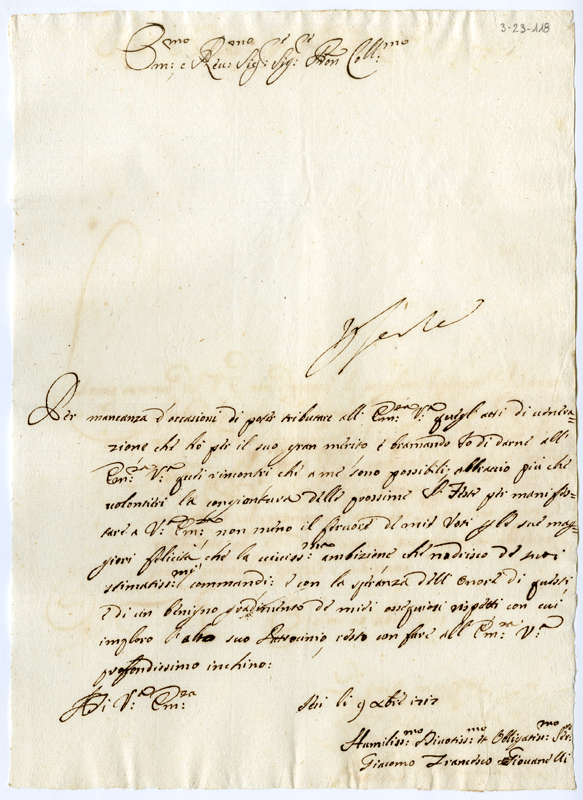 3-23-118
Em:mo e Reu:mo Sig:re Sig:re Pron Coll:mo
Feste
Per mancanza d'occasioni di poter tributare all: Em:za V:a quegl'atti di venera=
zione che hò per il suo gran merito e bramando Io di darne all'
Em:za V:a quei rincontri ch'a me sono possibili, abbraccio più che
volontieri la congiontura delle prossime S:te Feste per manifes=
tare a V:a Em:za non meno il feruore de miei Voti p le sue mag=
giori felicità, che la uiuciss:ma ambizione che nodrisco de suoi
stimatiss:mi commandi: e con la speranza dell'onore di questi
e di un benigno gradimento de miei ossequiosi rispetti con cui
imploro l'alto suo Patrocinio, resto con fare all' Em:za V:a
profondissimo inchino:
Di V:a Em:za
li 9 Xbre 1717
Humiliss:mo Diuotiss:mo et Obligatiss:mo Ser:
Giacomo Francesco Giouanelli